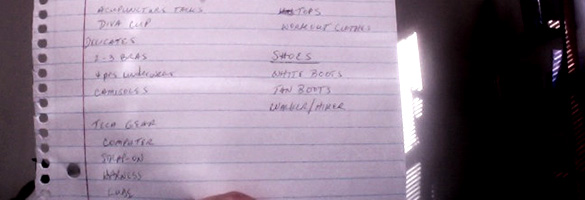 ACUPUNCTURE TACKS
DIVA CUP
DELICATES
2-3 BRAS
4 prs underwear
CAMISOLES
TECH GEAR
COMPUTER
STRAP-ON
HARNESS
LUBE
TOPS
WORKOUT CLOTHES
SHOES
WHITE BOOTS
TAN BOOTS
WALKER/HIKER